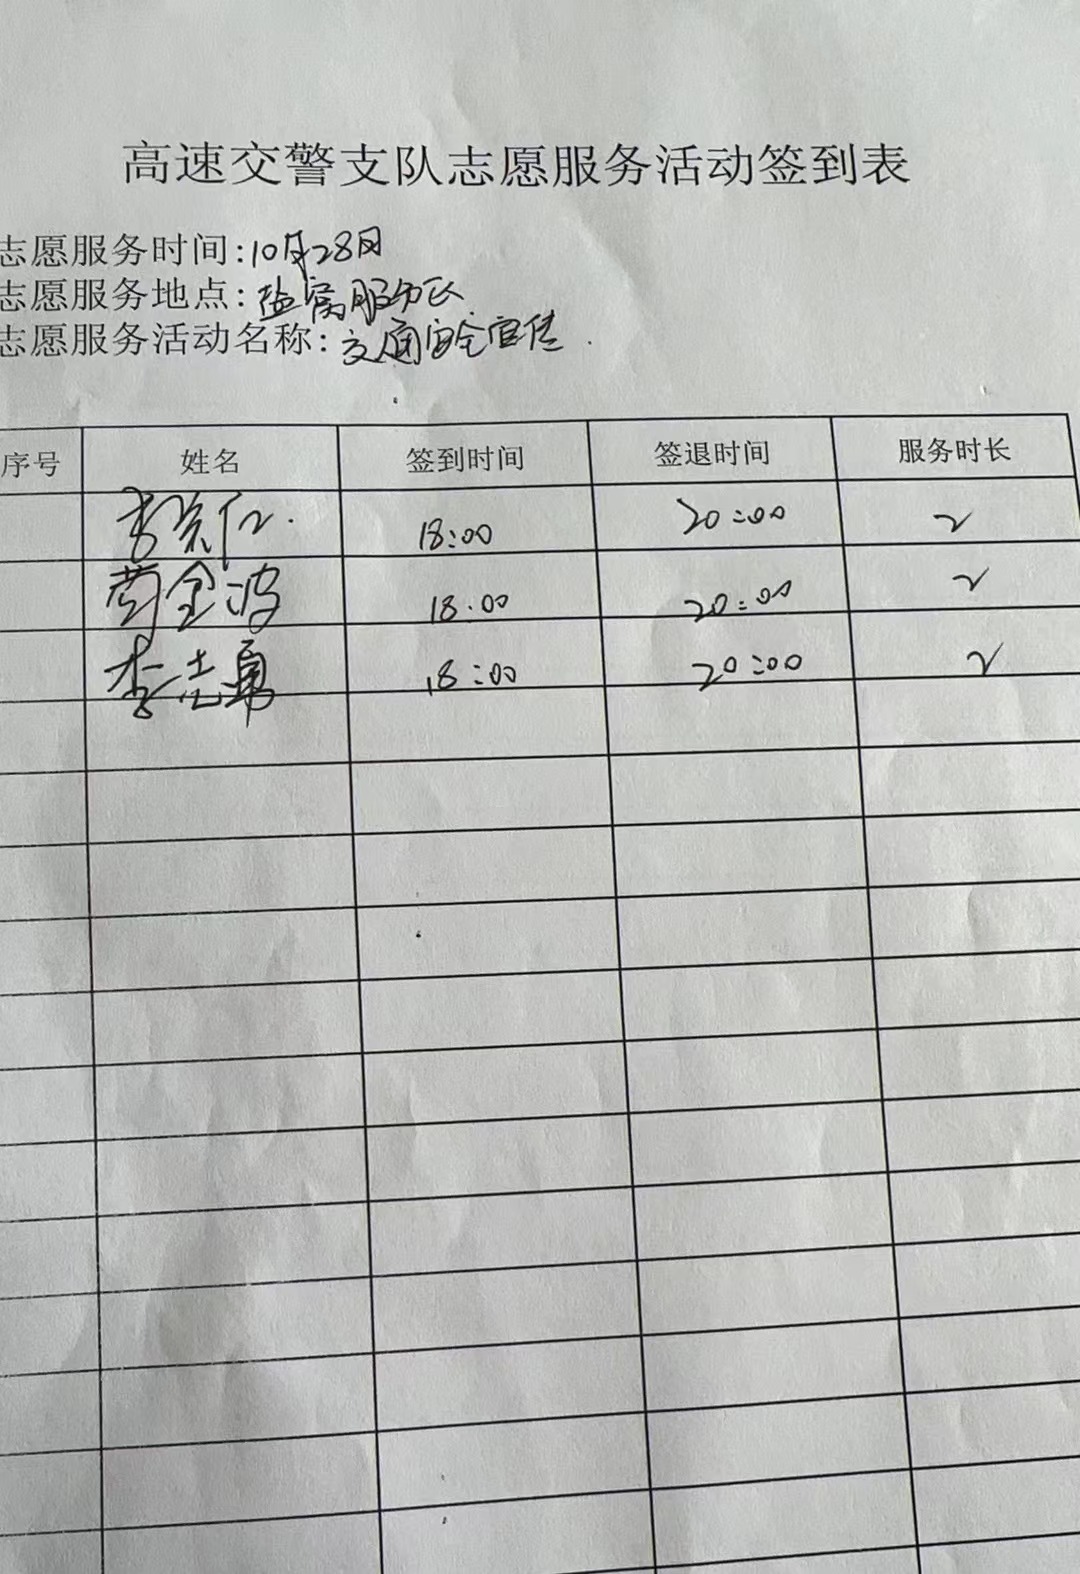 高速交警支队志愿服务活动签到表
志愿服务时间:10月28日
志愿服务地点:盐窝服务区
志愿服务活动名称:交通安全宣传.
序号 姓名 签到时间 签退时间 服务时长
18:00 20:00 2
黄金波 18:00 20:00 2
李志勇 18:00 20:00 2